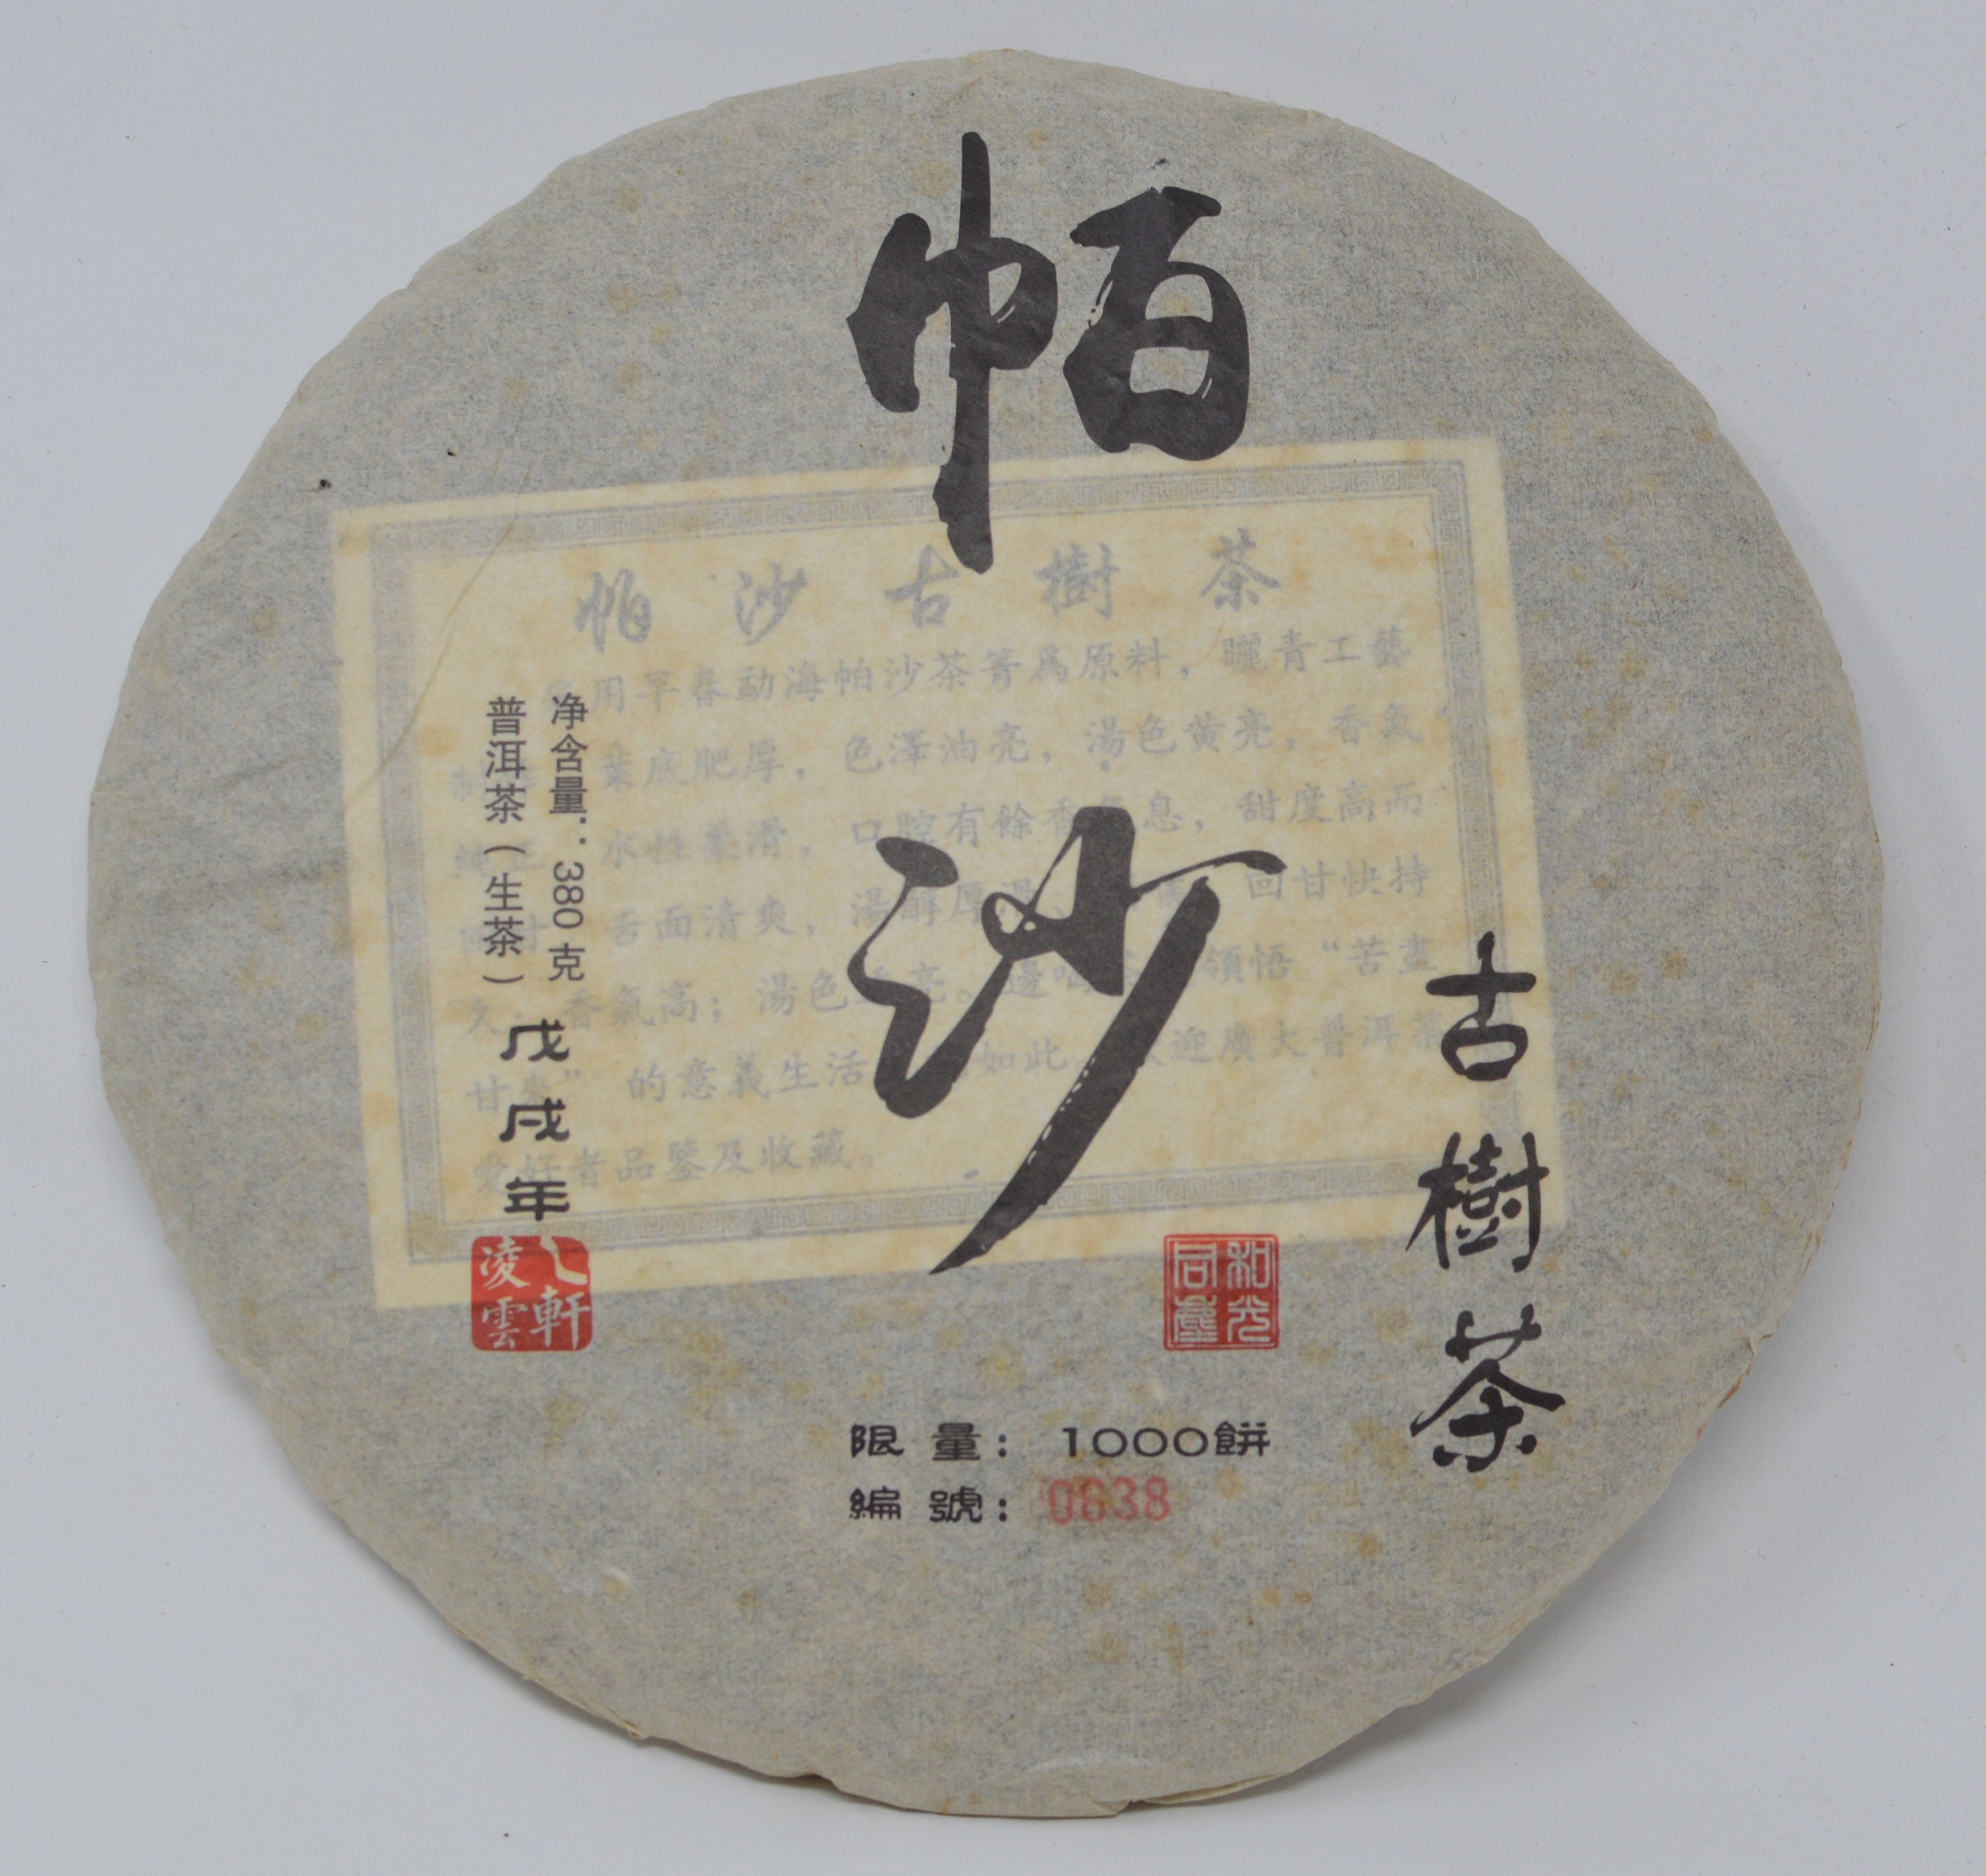 帕沙
古樹茶
净含量：380克
普洱茶（生茶）
戊戌年
凌雲軒
和光同塵
限量：1000餅
編號：0638
帕沙古樹茶
用早春勐海帕沙茶箐爲原料，曬青工藝
葉底肥厚，色澤油亮，湯色黄亮，香氣
水性 滑，口腔有餘香 息，甜度高而
舌面清爽，湯醇厚 回甘快持
久 香氣高；湯色 亮。邊 領悟“苦盡
甘 ”的意義生活 如此。 迎廣大普洱茶
愛好者品鑒及收藏。